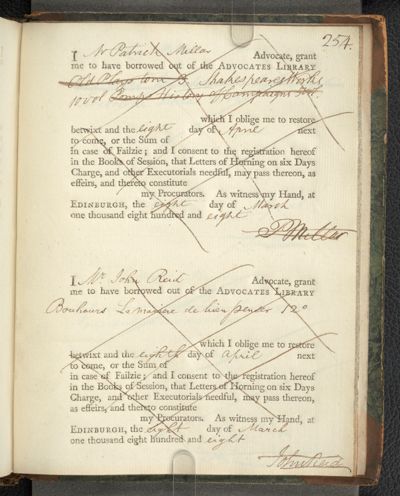 254.
I Mr Patrick Miller Advocate, grant
me to have borrowed out of the ADVOCATES LIBRARY
Old Plays tom 3. Shakespeares Works
10 vol History of Campaigns
which I oblige me to restore
betwixt and the eight day of April next
to come, or the Sum of
in case of Failzie; and I consent to the registration hereof
in the Books of Session, that Letters of Horning on six Days
Charge, and other Executorials needful, may pass thereon, as
effeirs, and thereto constitute
my Procurators. As witness my Hand, at
EDINBURGH, the eight day of March
one thousand eight hundred and eight
P Miller
I Mr. John Reid Advocate, grant
me to have borrowed out of the ADVOCATES LIBRARY
Bouhours La maniere de bien penser 12o
which I oblige me to restore
betwixt and the eighth day of April next
to come, or the Sum of
in case of Failzie; and I consent to the registration hereof
in the Books of Session, that Letters of Horning on six Days
Charge, and other Executorials needful, may pass thereon,
as effeirs, and thereto constitute
my Procurators. As witness my Hand, at
EDINBURGH, the eight day of March
one thousand eight hundred and eight
John Reid